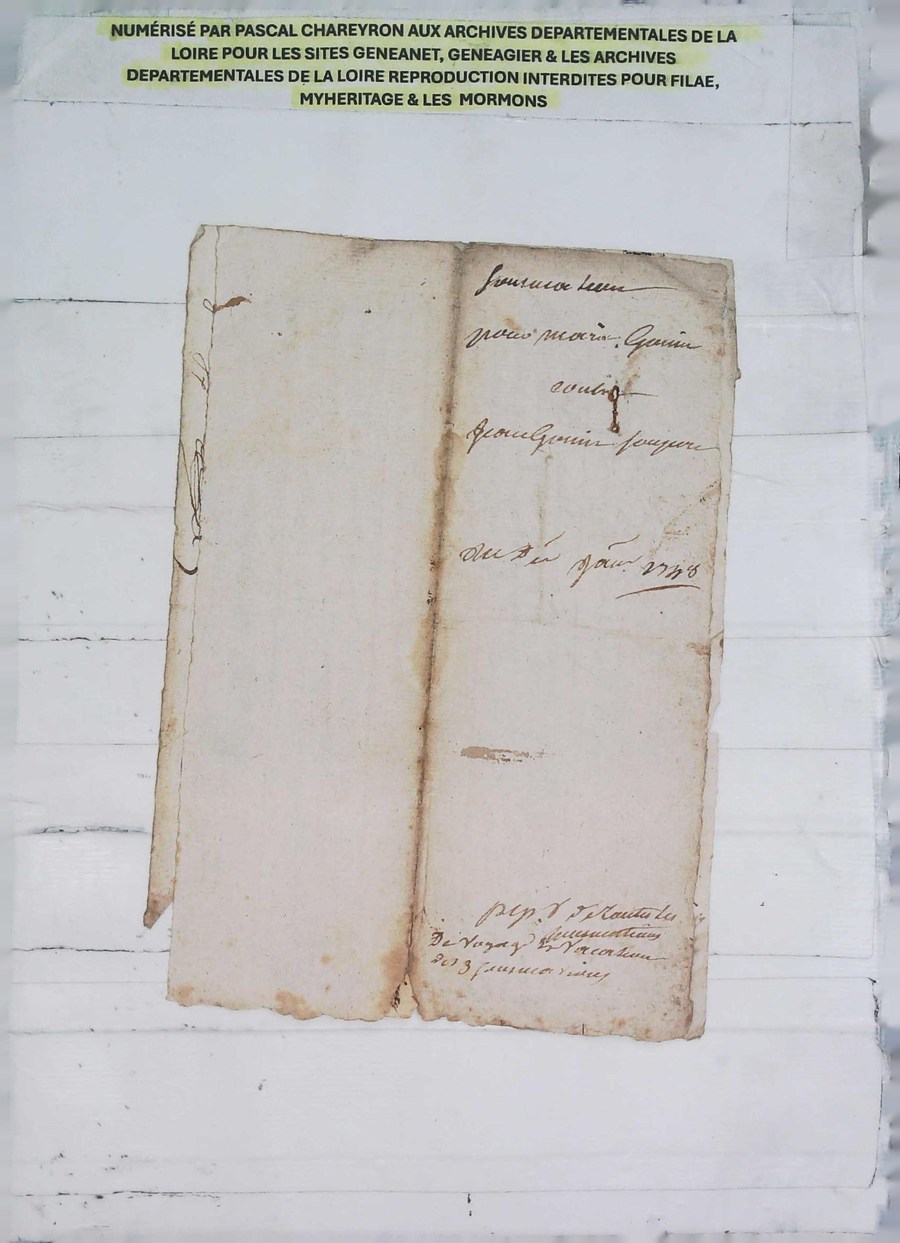 NUMÉRISÉ PAR PASCAL CHAREYRON AUX ARCHIVES DEPARTEMENTALES DE LA
LOIRE POUR LES SITES GENEANET, GENEAGIER & LES ARCHIVES
DEPARTEMENTALES DE LA LOIRE REPRODUCTION INTERDITES POUR FILAE,
MYHERITAGE & LES MORMONS
Sommation
pour marie Gonin
contre
Jean Gonin son pere
du
De voyage Vacation
des 3 sommations